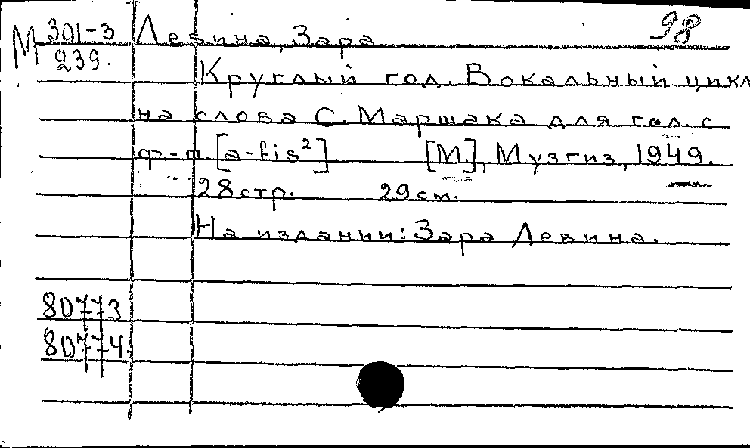 М 301-3 Левина, Зара 98
239.
Круглый год. Вокальный цикл
на слова С. Маршака для гол. с
ф-п. [a-fis²] [М.], Музгиз, 1949.
28 стр. 29 см.
На издании: Зара Левина.
80773
80774.